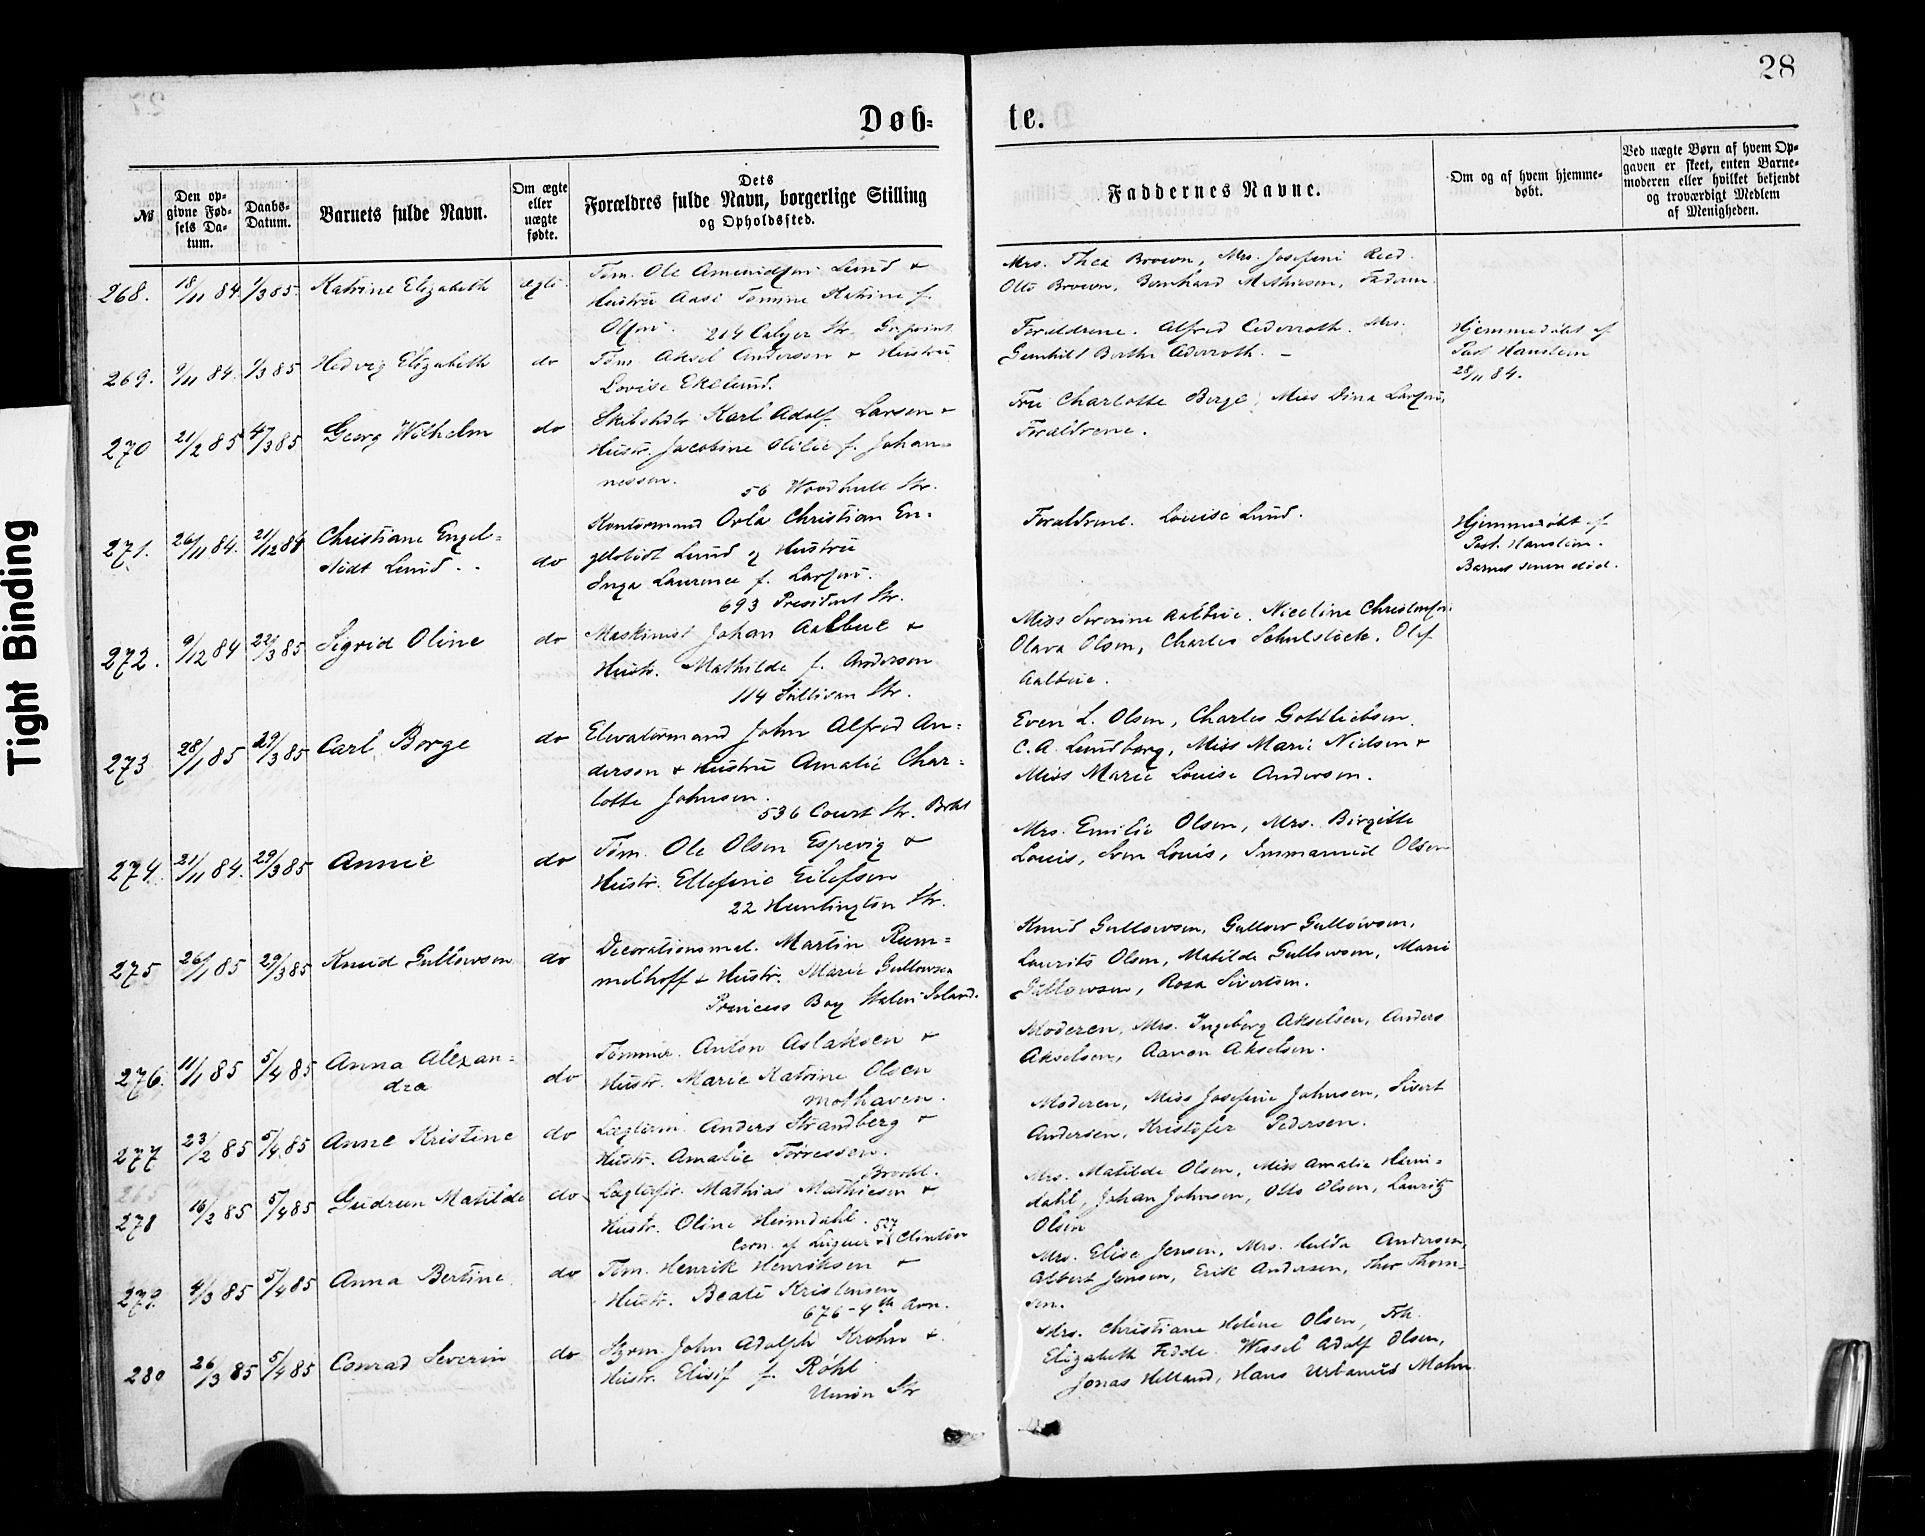 28
Døb- te.
№
Den opgivne Fødsels Datum.
Daabs-Datum.
Barnets fulde Navn.
Om ægte eller uægte fødte.
Dets Forældres fulde Navn, borgerlige Stilling og Opholdssted.
Faddernes Navne.
Om og af hvem hjemmedøbt.
Ved uægte Børn af hvem Opgaven er skeet, enten Barnemoderen eller hvilket bekjendt og troværdigt Medlem af Menigheden.
268. 18/11 84. 1/3 85. Katrine Elizabeth ægte
Tøm. Ole Lund +
Hustru Aase Tomine Katrine f.
Olsen. 214 Calyer Str. Grpoint
Mrs. Thea Brown, Mrs. Josefine Reed.
Otto Brown, Bernhard Mathiesen, Faderen.
269. 9/11 84. 1/3 85 Hedvig Elizabeth do
Tøm. Aksel Anderson + Hustru
Lovise Ekelund.
Forældrene. Alfred Cederroth. Mrs.
Gunhild Berthe Cederroth. –
Hjemmedøbt af
Past. Hanstein
28/11 84.
270 21/2 85 4/3 85 Georg Wilhelm do
Karl Adolf Larsen +
Hustr. Jacobine Otilie f. Johan=
nessen.
56 Woodhull Str.
Fru Charlotte Berge, Miss Dina Larsen,
Forældrene.
271. 26/11 84. 21/12 84 Christiane Engel=
stedt Lund. do
Kontormand Orla Christian En=
gelstedt Lund og Hustru
Inga Laurence f. Larsen.
693 President Str.
Forældrene. Louise Lund.
Hjemmedøbt af
Past. Hanstein.
Barnet senere død.
272. 9/12 84 22/3 85 Sigrid Oline do
Maskinist Johan Aalbue +
Hustr. Mathilde f. Anderson
114 Sullivan Str.
Miss Severine Aalbue. Nicoline Christensen.
Olava Olsen, Charles Schulstock. Olef
Aalbue.
273 28/1 85 29/3 85 Carl Borge do
Elevatormand John Alfred An=
derson + Hustru Amalie Char=
lotte Johnson.
536 Court Str. Brkl
Even L. Olsen, Charles Gottliebsen.
C. A. Lundborg, Miss Marie Nielsen +
Miss Marie Louise Anderson.
274. 21/11 84. 29/3 85 Annie do
Tøm. Ole Olsen Espevig +
Hustr. Ellefine Eilefsen
22 Huntington Str.
Mrs. Emilie Olsen, Mrs. Birgitte
Louis, Sven Louis, Immanuel Olsen
275 26/1 85 29/3 85 Knud Gullowsen do
Decorationsmal. Martin Rum=
melhoff + Hustr. Marie Gullowsen
Princess Bay Staten Island.
Knud Gullowsen, Gullow Gullowsen,
Laurits Olsen, Matilde Gullowsen, Marie
Gullowsen, Rosa Sivertsen.
276. 11/1 85 5/4 85 Anna Alexan=
dra do
Tømmer. Anton Aslaksen +
Hustr. Marie Katrine Olsen
Mothaven.
Moderen, Mrs. Ingeborg Akselsen, Anders
Akselsen, Aaron Akselsen.
277 23/2 85 5/4 85 Anne Kristine do
Anders Strandberg +
Hustr. Amalie Torressen.
Brookl.
Moderen, Miss Josefine Johnsen, Sivert
Andersen, Kristofer Pedersen.
278 16/2 85 5/4 85 Gudrun Matilde do
Mathias Mathiesen +
Hustr. Oline Heimdahl.
Corn. of Luquer + 527 Clinton
Mrs. Matilde Olsen, Miss Amalie Heim=
dahl, Johan Johnsen, Otto Olsen, Lauritz
Olsen
279. 4/3 85 5/4 85 Anna Bertine do
Tøm. Henrik Henriksen +
Hustr. Beate Kristensen
676 - 4th Avn.
Mrs. Elise Jensen, Mrs. Hulda Andersen,
Albert Jensen, Erik Andersen, Thor Thom=
sen.
280 26/3 85 5/4 85 Conrad Severin do
Styrm. John Adolph Krohn +
Hustr. Elisif f. Röhl
Union Str
Mrs. Christiane Helene Olsen, Frk.
Elizabeth Fedde. Wessel Adolf Olsen,
Jonas Helland, Hans Urbanus Mohn.
Tight Binding